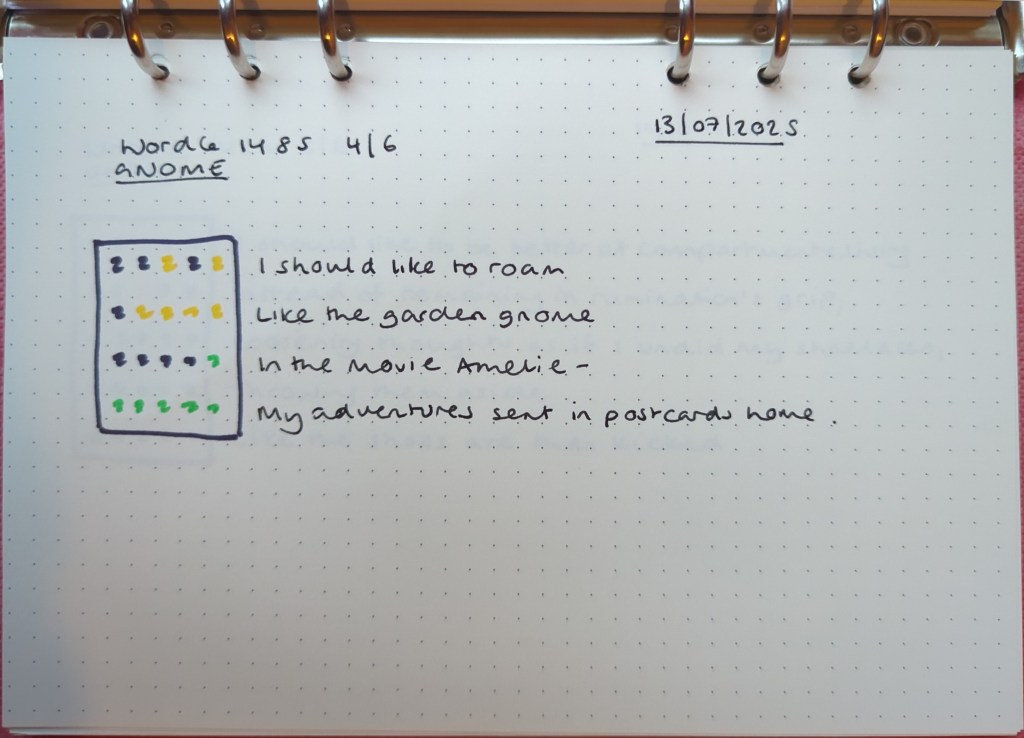 13/07/2025
Wordle 1485 4/6
GNOME
I should like to roam
Like the garden gnome
In the Movie Amelie -
My adventures sent in postcards home.